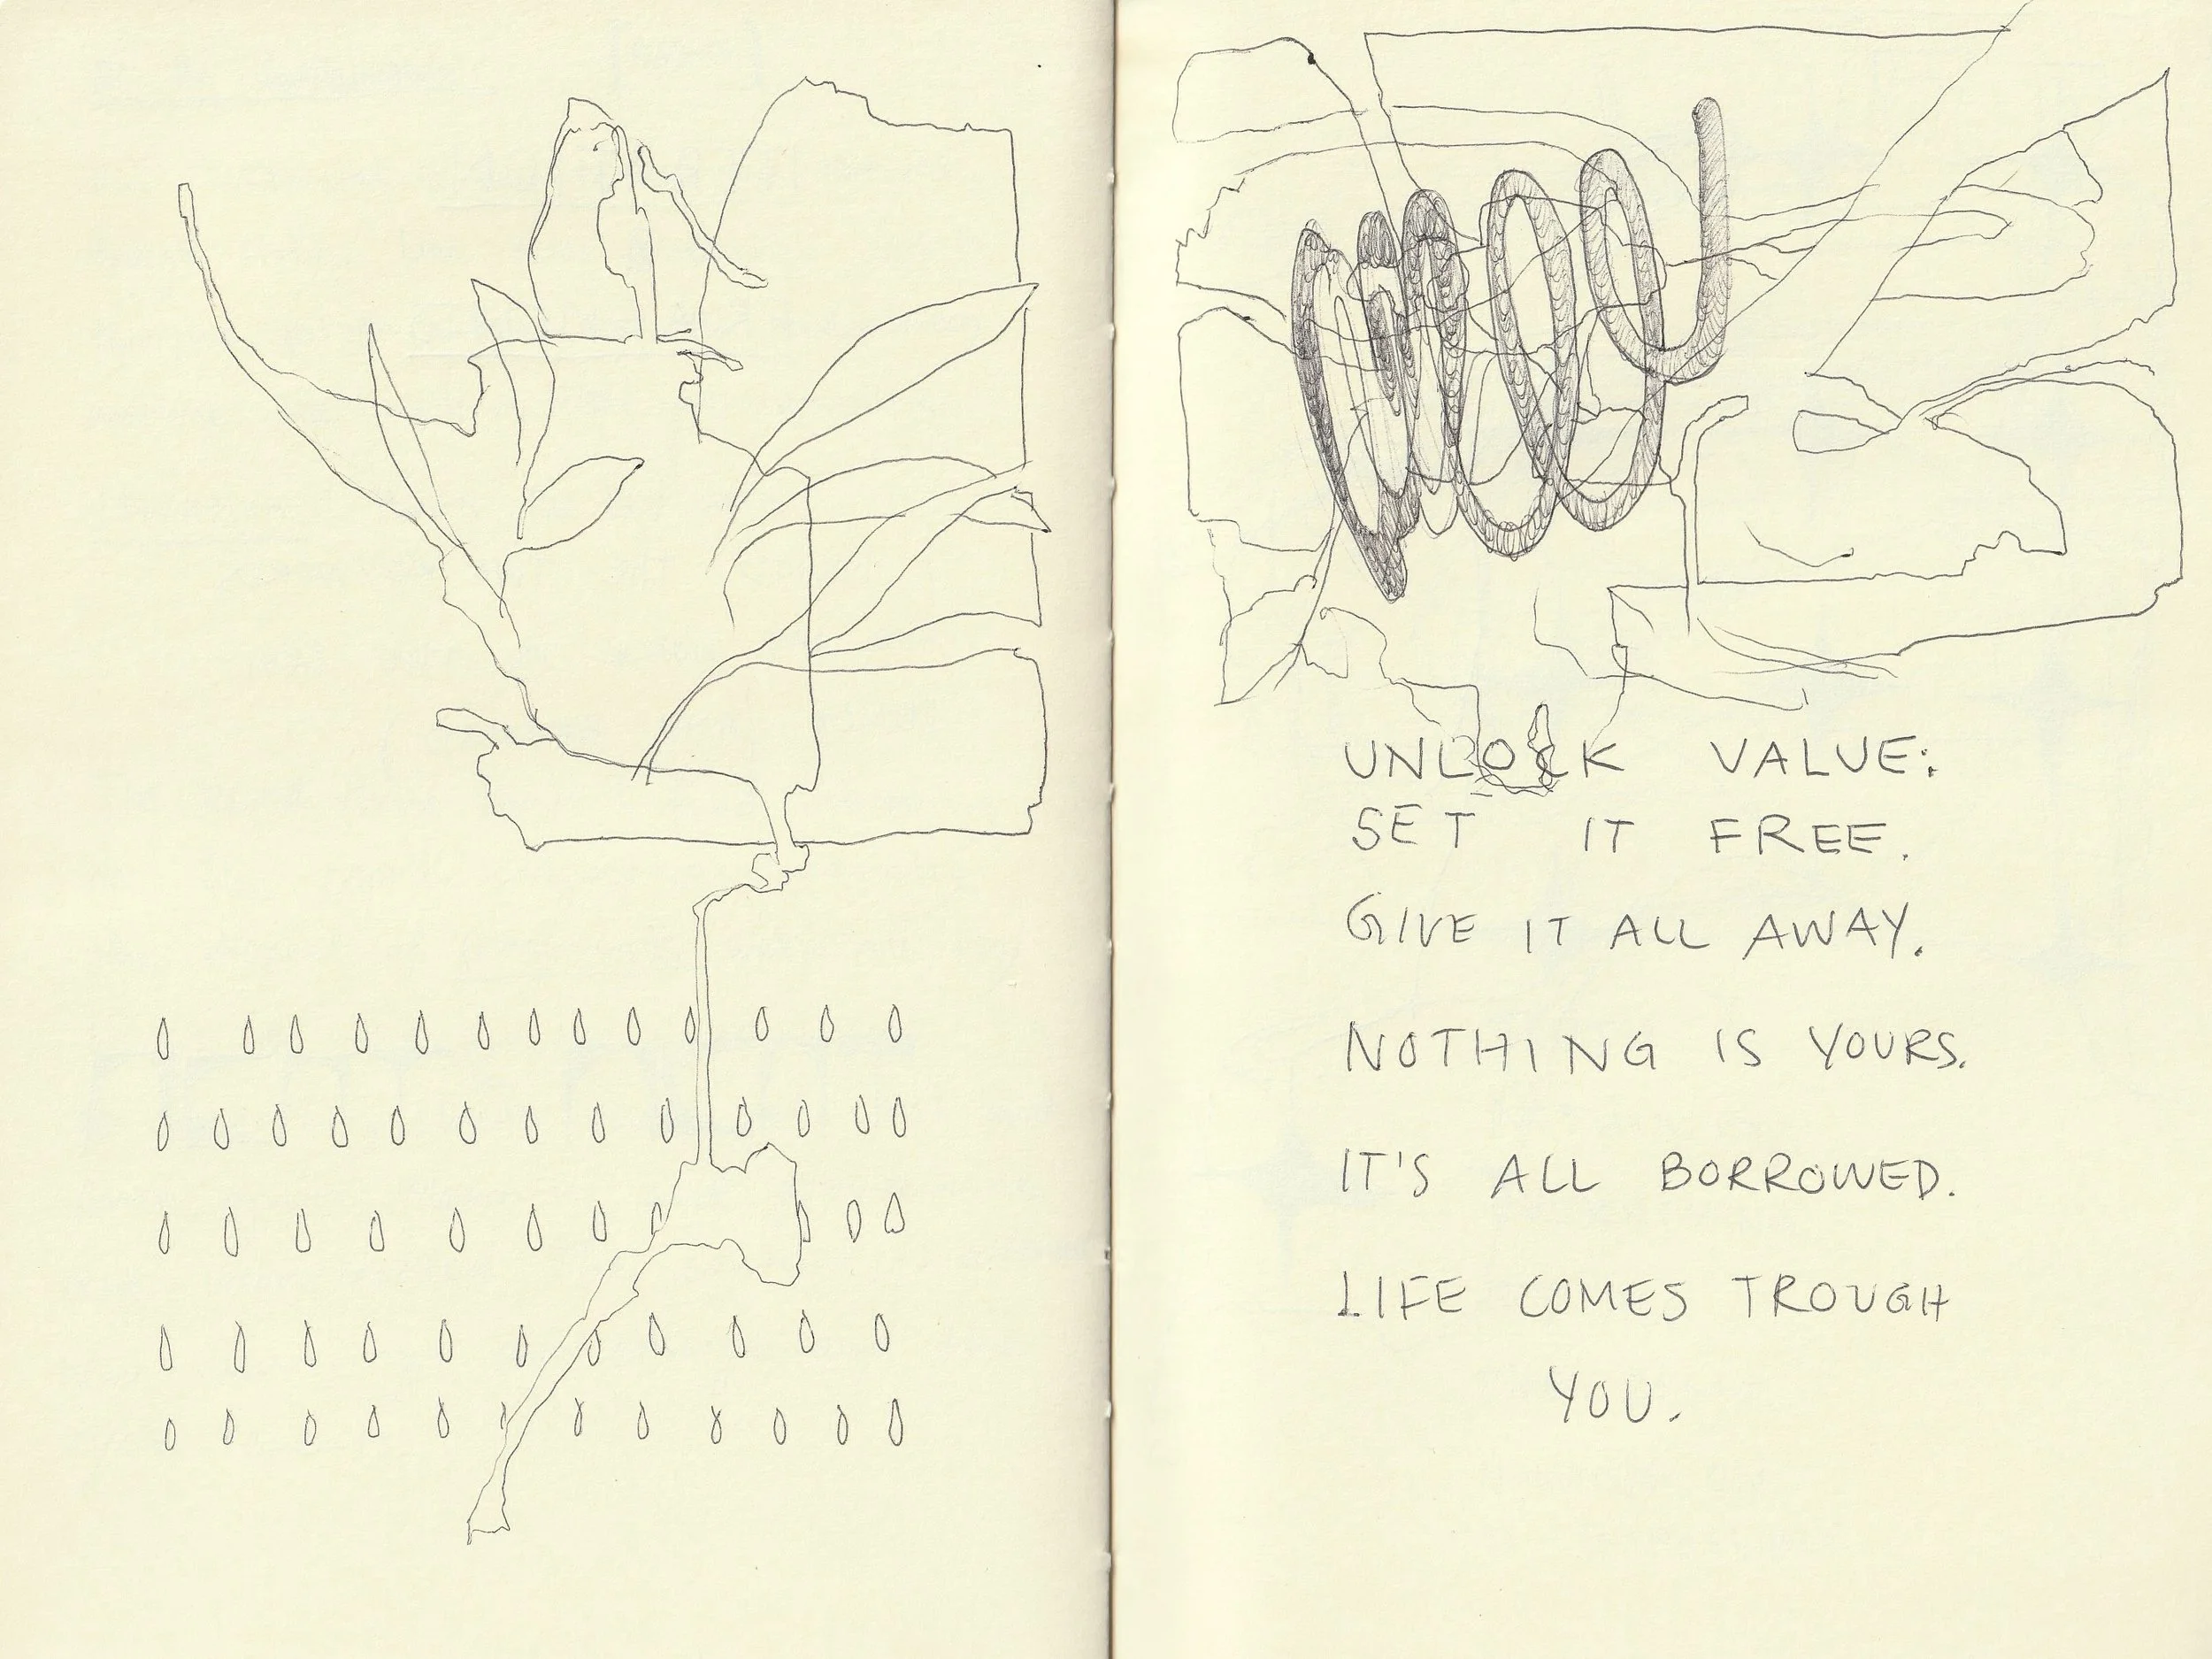 UNLOCK VALUE:
SET IT FREE.
GIVE IT ALL AWAY.
NOTHING IS YOURS.
IT'S ALL BORROWED.
LIFE COMES TROUGH
YOU.